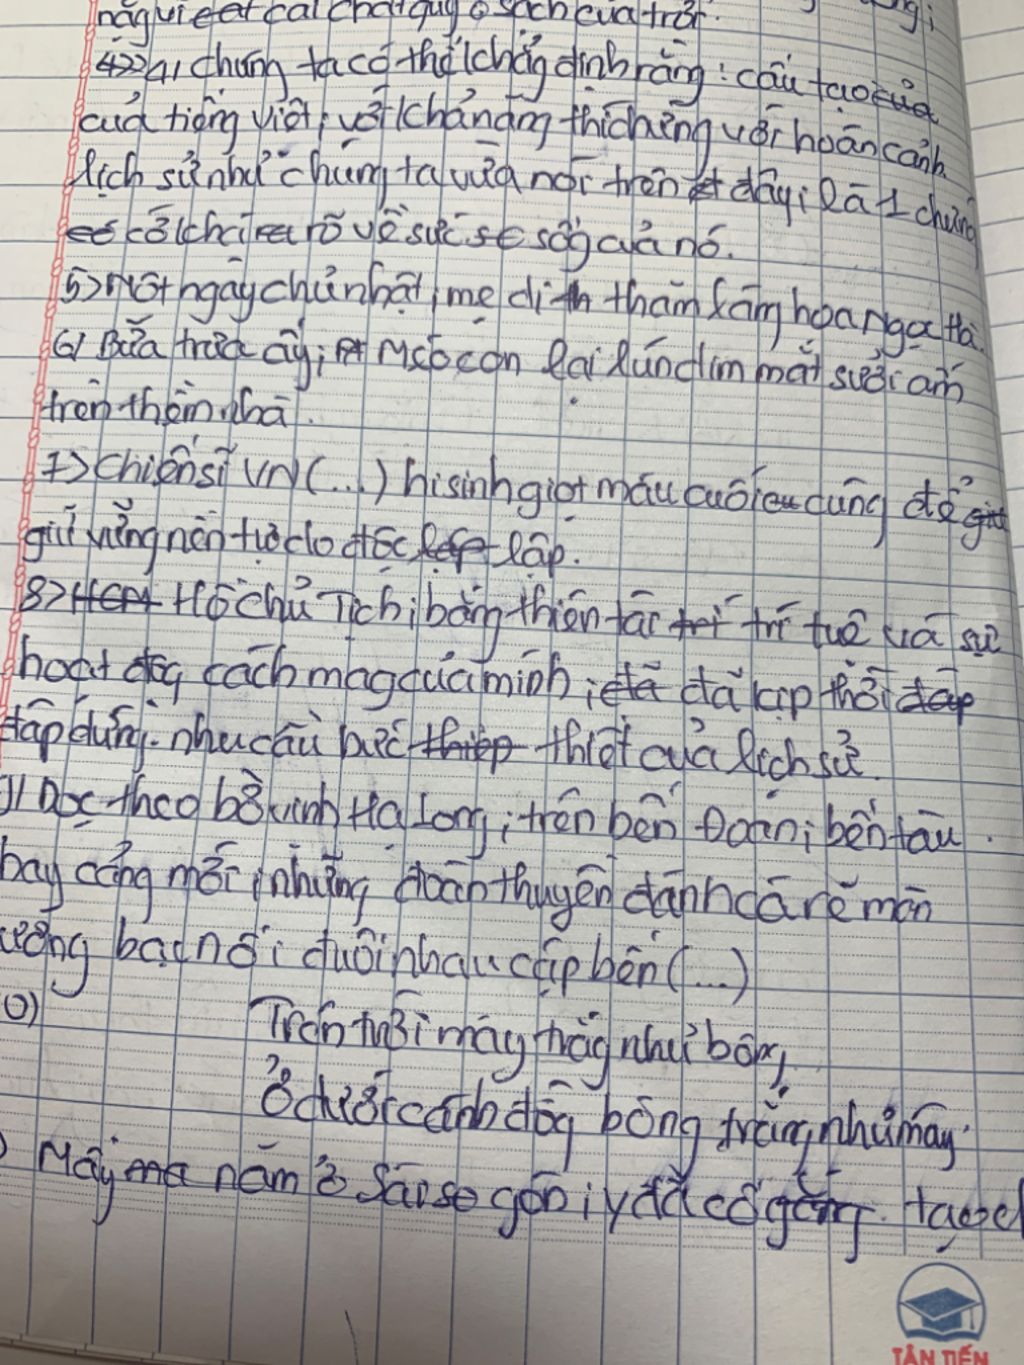 nắg vi eat cái chất quý o sạch của trời.
4>> 41 chúng ta có thể khẳg định rằng : cấu tạo của
của tiếng việt, với khả năng thích ứng với hoàn cảnh
lịch sử như chúng ta vừa nói trên đây, là 1 chứng
cớ khá rõ về sức sốg của nó.
5> Một ngày chủ nhật, mẹ đi thăm làng hoa Ngọc Hà.
6/ Bữa trưa ấy, con lại lim dim mắt sưởi ấm
trên thềm nhà.
7> Chiến sĩ VN (...) hi sinh giọt máu cuối cùng để
giữ vững nền tự do độc lập.
8> Hồ Chủ Tịch, bằng thiên tài trí tuệ và sự
hoạt độg cách mạg của mình, đã kịp thời
đáp ứng nhu cầu bức thiết của lịch sử.
Dọc theo bờ vịnh Hạ Long, trên bến Đoan, bến tàu
hay cảng mới, những đoàn thuyền đánh cá rẽ màn
ương bạc nối đuôi nhau cập bến (...)
0)
Trên trời mây trắg như bông
Ở dưới cánh đồg bông trắng như mây.
Mấy năm ở Sài gòn, y đã cố gắng
TÂN TIẾN